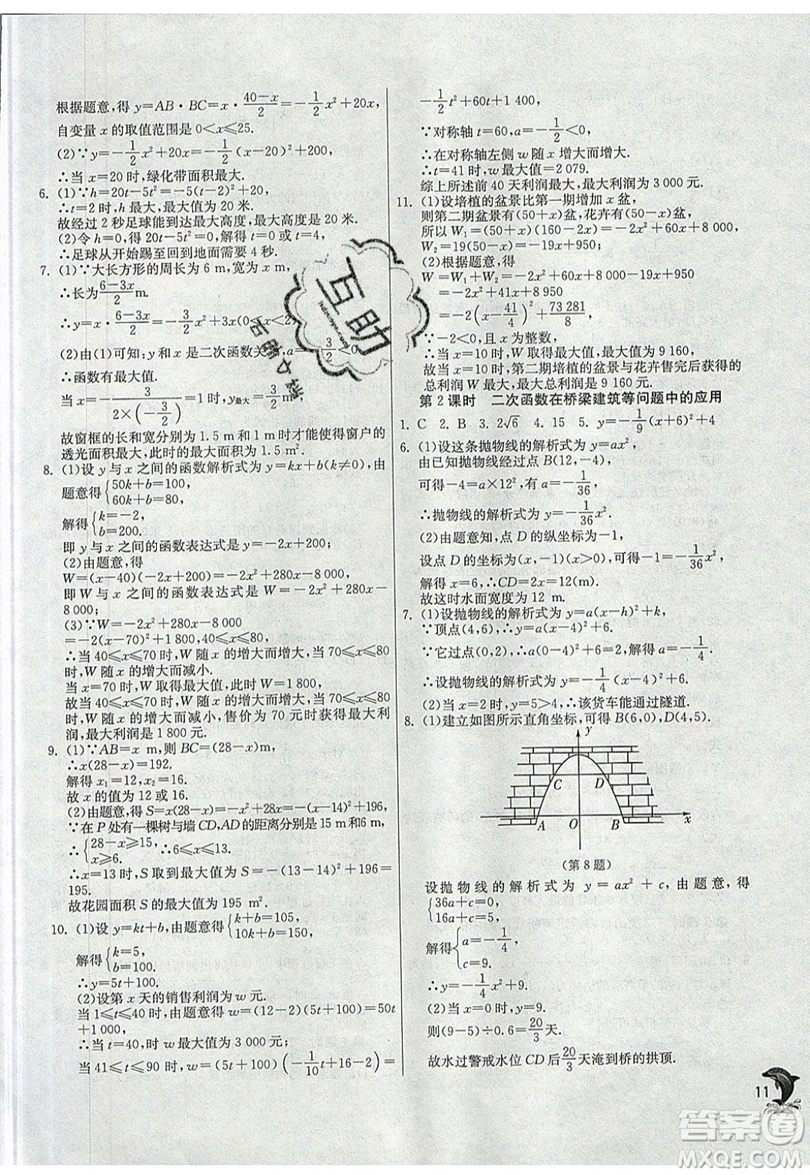 根据题意,得 y=AB·BC=x·\frac{40-x}{2}=-\frac{1}{2}x²+20x,
自变量 x 的取值范围是 0<x≤25.
(2)∵y=-\frac{1}{2}x²+20x=-\frac{1}{2}(x-20)²+200,
∴当 x=20 时,绿化带面积最大.
6. (1)∵h=20t-5t²=-5(t-2)²+20,
∴t=2 时,h 最大,最大值为 20.
故经过 2 秒足球能到达最大高度,最大高度是 20 米.
(2)令 h=0,得 20t-5t²=0,解得 t=0 或 t=4,
∴足球从开始踢至回到地面需要 4 秒.
7. (1)∵大长方形的周长为 6 m,宽为 x m,
∴长为\frac{6-3x}{2}m.
∴y=x·\frac{6-3x}{2}=-\frac{3}{2}x²+3x(0<
(2)由(1)可知:y 与 x 是二次函数关
a=-\frac{3}{2}<0
∴函数有最大值.
当 x=-\frac{3}{2×(-\frac{3}{2})}=1 时,y最大=\frac{3}{2}m².
故窗框的长和宽分别为 1.5 m 和 1 m 时才能使得窗户的
透光面积最大,此时的最大面积为 1.5 m².
8. (1)设 y 与 x 之间的函数解析式为 y=kx+b(k≠0),由
题意得{50k+b=100, 60k+b=80,
解得{k=-2, b=200.
即 y 与 x 之间的函数表达式是 y=-2x+200;
(2)由题意,得
W=(x-40)(-2x+200)=-2x²+280x-8 000,
即W与 x 之间的函数表达式是 W=-2x²+280x-
8 000;
(3)∵W=-2x²+280x-8 000
=-2(x-70)²+1 800,40≤x≤80,
∴当 40≤x≤70 时,W 随 x 的增大而增大,当 70≤x≤
80 时,W 随 x 的增大而减小.
当 x=70 时,W 取得最大值,此时W=1 800.
故当 40≤x≤70 时,W 随 x 的增大而增大,当 70≤x≤80
时,W 随 x 的增大而减小,售价为 70 元时获得最大利
润,最大利润是 1 800 元.
9. (1)∵AB=x m,则 BC=(28-x)m,
∴x(28-x)=192.
解得 x₁=12,x₂=16.
故 x 的值为 12 或 16.
(2)由题意,得 S=x(28-x)=-x²+28x=-(x-14)²+196,
∵在 P 处有一棵树与墙 CD,AD 的距离分别是 15 m和6 m,
∴{28-x≥15, x≥6. ∴6≤x≤13.
∴x=13 时,S 取到最大值为 S=-(13-14)²+196=
195.
故花园面积 S 的最大值为 195 m².
10. (1)设 y=kt+b,由题意得{k+b=105, 10k+b=150,
解得{k=5, b=100.
∴y=5t+100.
(2)设第 x 天的销售利润为 w 元.
当 1≤t≤40 时,由题意得 w=(12-2)(5t+100)=50t
+1 000,
∴当 t=40 时,w 最大值为 3 000 元;
当 41≤t≤60 时,w=(5t+100)(-\frac{1}{10}t+16-2)=
-\frac{1}{2}t²+60t+1 400,
∵对称轴 t=60,a=-\frac{1}{2}<0,
∴在对称轴左侧 w 随 x 增大而增大.
∴t=41 时,w 最大=2 079.
综上所述前 40 天利润最大,最大为 3 000 元.
11. (1)设培植的盆景比第一期增加 x 盆,
则第二期盆景有(50+x)盆,花卉有(50-x)盆,
所以 W₁=(50+x)(160-2x)=-2x²+60x+8 000,
W₂=19(50-x)=-19x+950;
(2)根据题意,得
W=W₁+W₂=-2x²+60x+8 000-19x+950
=-2x²+41x+8 950
=-2(x-\frac{41}{4})²+\frac{73 281}{8},
∵-2<0,且 x 为整数,
∴当 x=10 时,W 取得最大值,最大值为 9 160,
故当 x=10 时,第二期培植的盆景与花卉售完后获得的
总利润 W 最大,最大总利润是 9 160 元.
第 2 课时 二次函数在桥梁建筑等问题中的应用
1. C 2. B 3. 2√6 4. 15 5. y=-\frac{1}{9}(x+6)²+4
6. (1)设这条抛物线的解析式为 y=ax².
由已知抛物线经过点 B(12,-4),
可得-4=a×12²,有 a=-\frac{1}{36},
∴抛物线的解析式为 y=-\frac{1}{36}x²;
(2)由题意知,点 D 的纵坐标为-1,
设点 D 的坐标为(x,-1)(x>0),可得-1=-\frac{1}{36}x²,
解得 x=6.∴CD=2x=12(m).
故这时水面宽度为 12 m.
7. (1)设抛物线的解析式为 y=a(x-h)²+k,
∵顶点(4,6),∴y=a(x-4)²+6.
∵它过点(0,2),∴a(0-4)²+6=2,解得 a=-\frac{1}{4}.
∴设抛物线的解析式为 y=-\frac{1}{4}(x-4)²+6;
(2)当 x=2 时,y=5>4,∴该货车能通过隧道.
8. (1)建立如图所示直角坐标,可得 B(6,0),D(4,5).
y
C D
A O B x
(第 8 题)
设抛物线的解析式为 y=ax²+c,由题意,得
{36a+c=0, 16a+c=5.
解得{a=-\frac{1}{4}, c=9.
∴y=-\frac{1}{4}x²+9;
(2)当 x=0 时,y=9.
则(9-5)÷0.6=\frac{20}{3}天.
故水过警戒水位 CD 后\frac{20}{3}天淹到桥的拱顶.
互助
11
答案圈
MXQE.COM